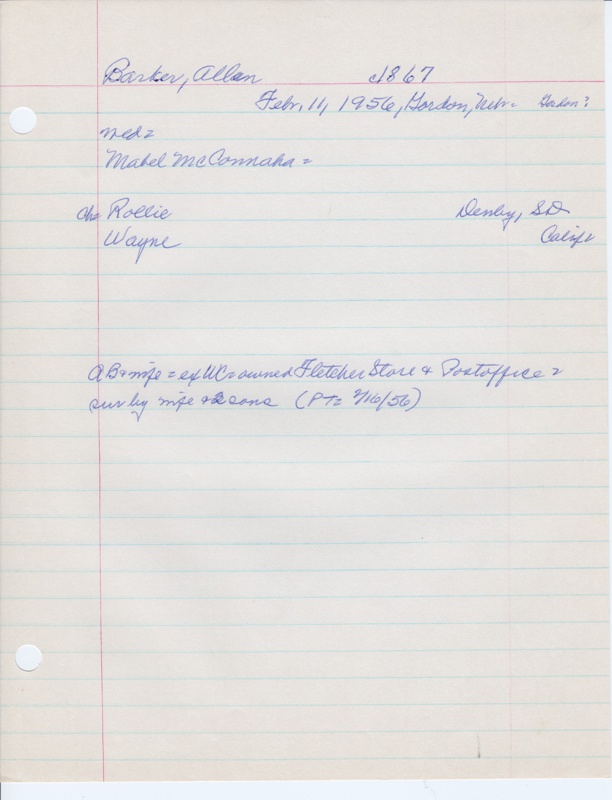 Barker, Allen c1867
Febr. 11, 1956, Gordon, Nebr= Gordon?
med=
Mabel McConnaha=
ch= Rollie Denby, SD
Wayne Calif=
AB+wife=ex WC=owned Fletcher Store + Postoffice=
sur by wife + 2 sons (PT= 2/16/56)